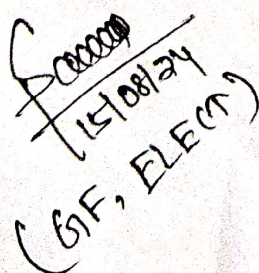 15/08/24
(GF, ELE(T)